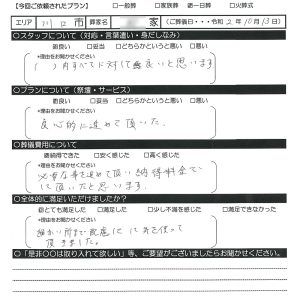 【今回ご依頼されたプラン】 □一般葬 □家族葬 ☑一日葬 □火葬式
エリア 川口市 葬家名 家 (ご葬儀日・令和2年10月13日)
○スタッフについて（対応・言葉遣い・身だしなみ）
☑良い □妥当 □どちらかというと悪い □悪い
*理由をお聞かせください
すべてに対して良いと思います
○プランについて（祭壇・サービス）
☑良い □妥当 □どちらかというと悪い □悪い
*理由をお聞かせください
良心的に進めて頂いた。
○葬儀費用について
☑納得できた □安く感じた □高く感じた
*理由をお聞かせください
必要な事を進めて頂い納得料金で
に頂いたと思います。
○全体的に満足いただけましたか？
☑とても満足した □満足した □少し不満を感じた □満足できなかった
*理由をお聞かせください
細かい所まで配慮に気を使って
頂きました。
○「是非○○は取り入れて欲しい」等、ご要望がございましたらお聞かせください。